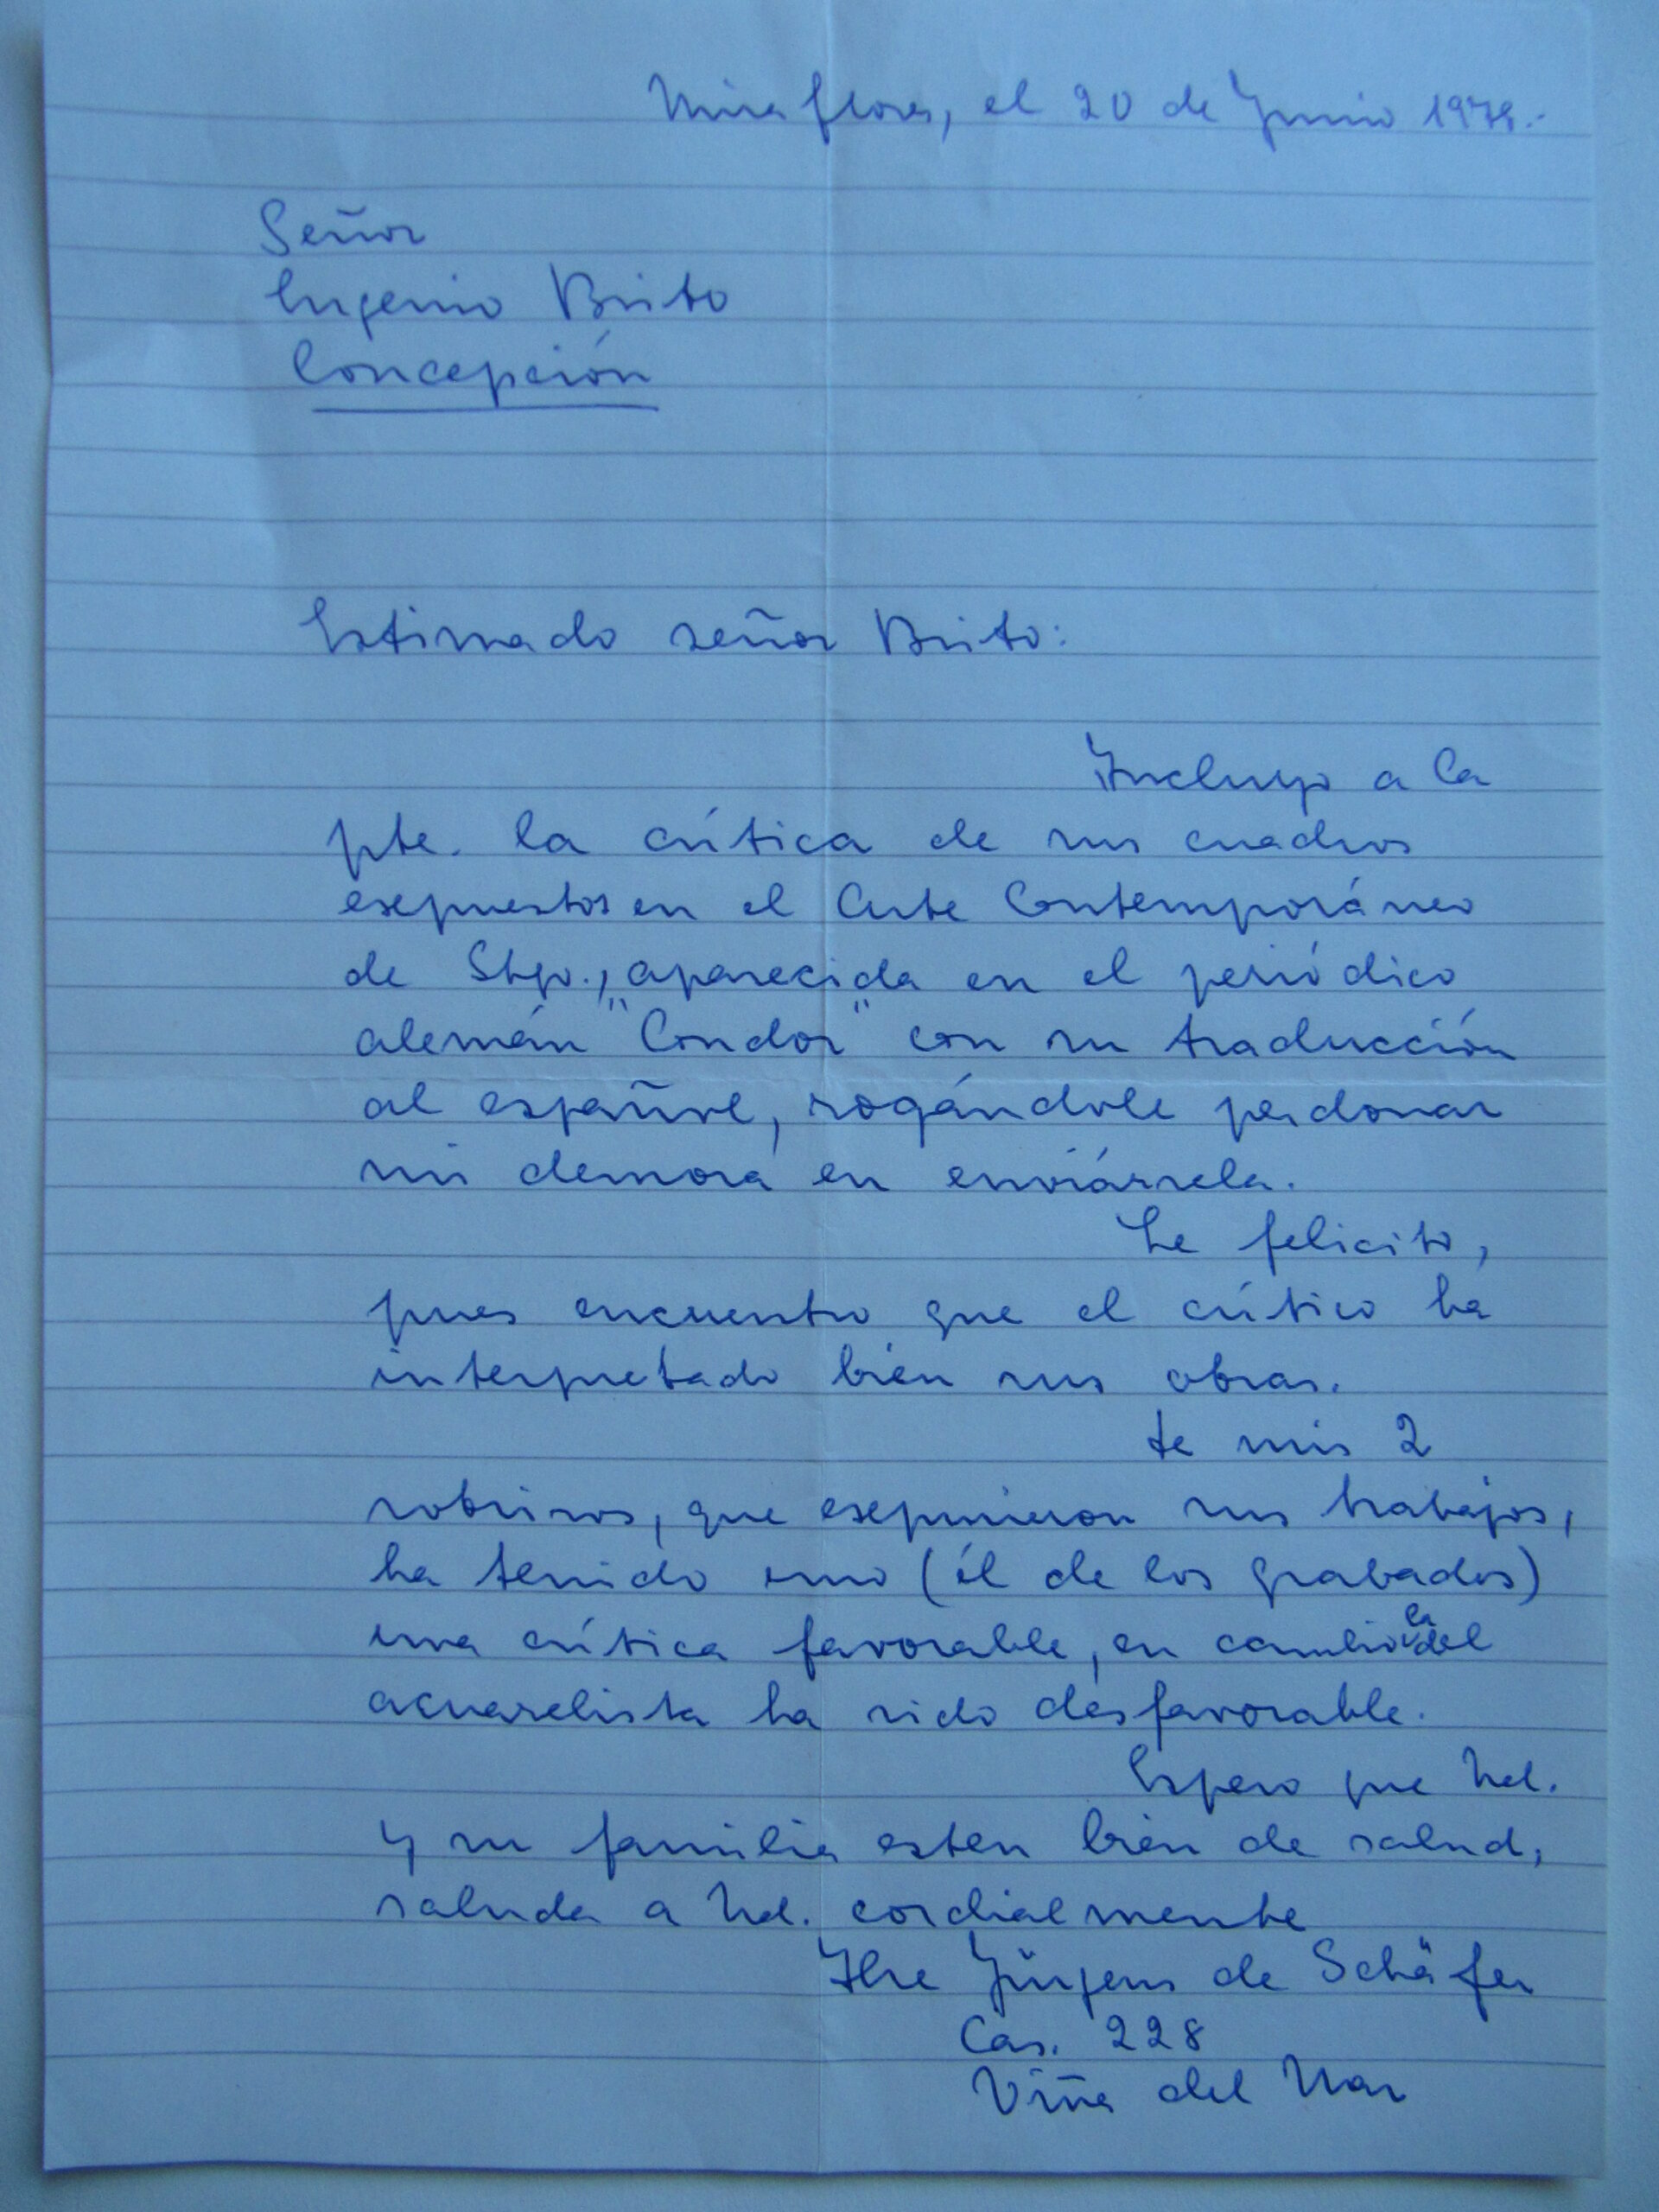 Miraflores, el 20 de Junio 1979.-
Señor
Eugenio Brito
Concepción
Estimado señor Brito:
Incluyo a la
pte. la crítica de sus cuadros
expuestos en el Arte Contemporáneo
de Stgo., aparecida en el periódico
alemán "Condor" con su traducción
al español, rogándole perdonar
mi demora en enviársela.
Le felicito,
pues encuentro que el crítico ha
interpretado bien sus obras.
De mis 2
sobrinos, que expusieron sus trabajos,
ha tenido uno (él de los grabados)
una crítica favorable, en cambio la del
acuarelista ha sido desfavorable.
Espero que Ud.
y su familia esten bien de salud,
saluda a Ud. cordialmente
Ilse Jürgens de Schäfer
Cas. 228
Viña del Mar